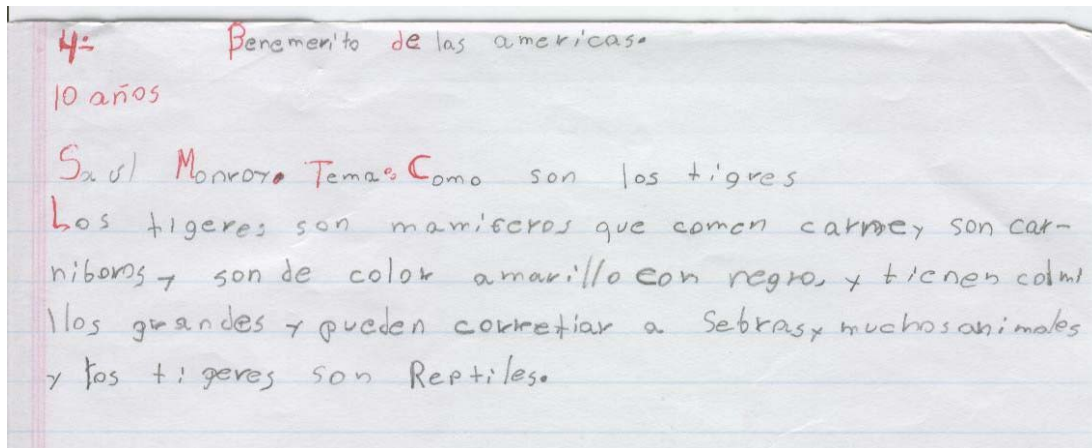 4º Benemerito de las americas.
10 años
Saul Monroy. Tema: Como son los tigres
Los tigeres son mamiferos que comen carne y son car-
niboros y son de color amarillo con negro, y tienen colmi
llos grandes y pueden corretiar a Sebras y muchos animales
y los tigeres son Reptiles.